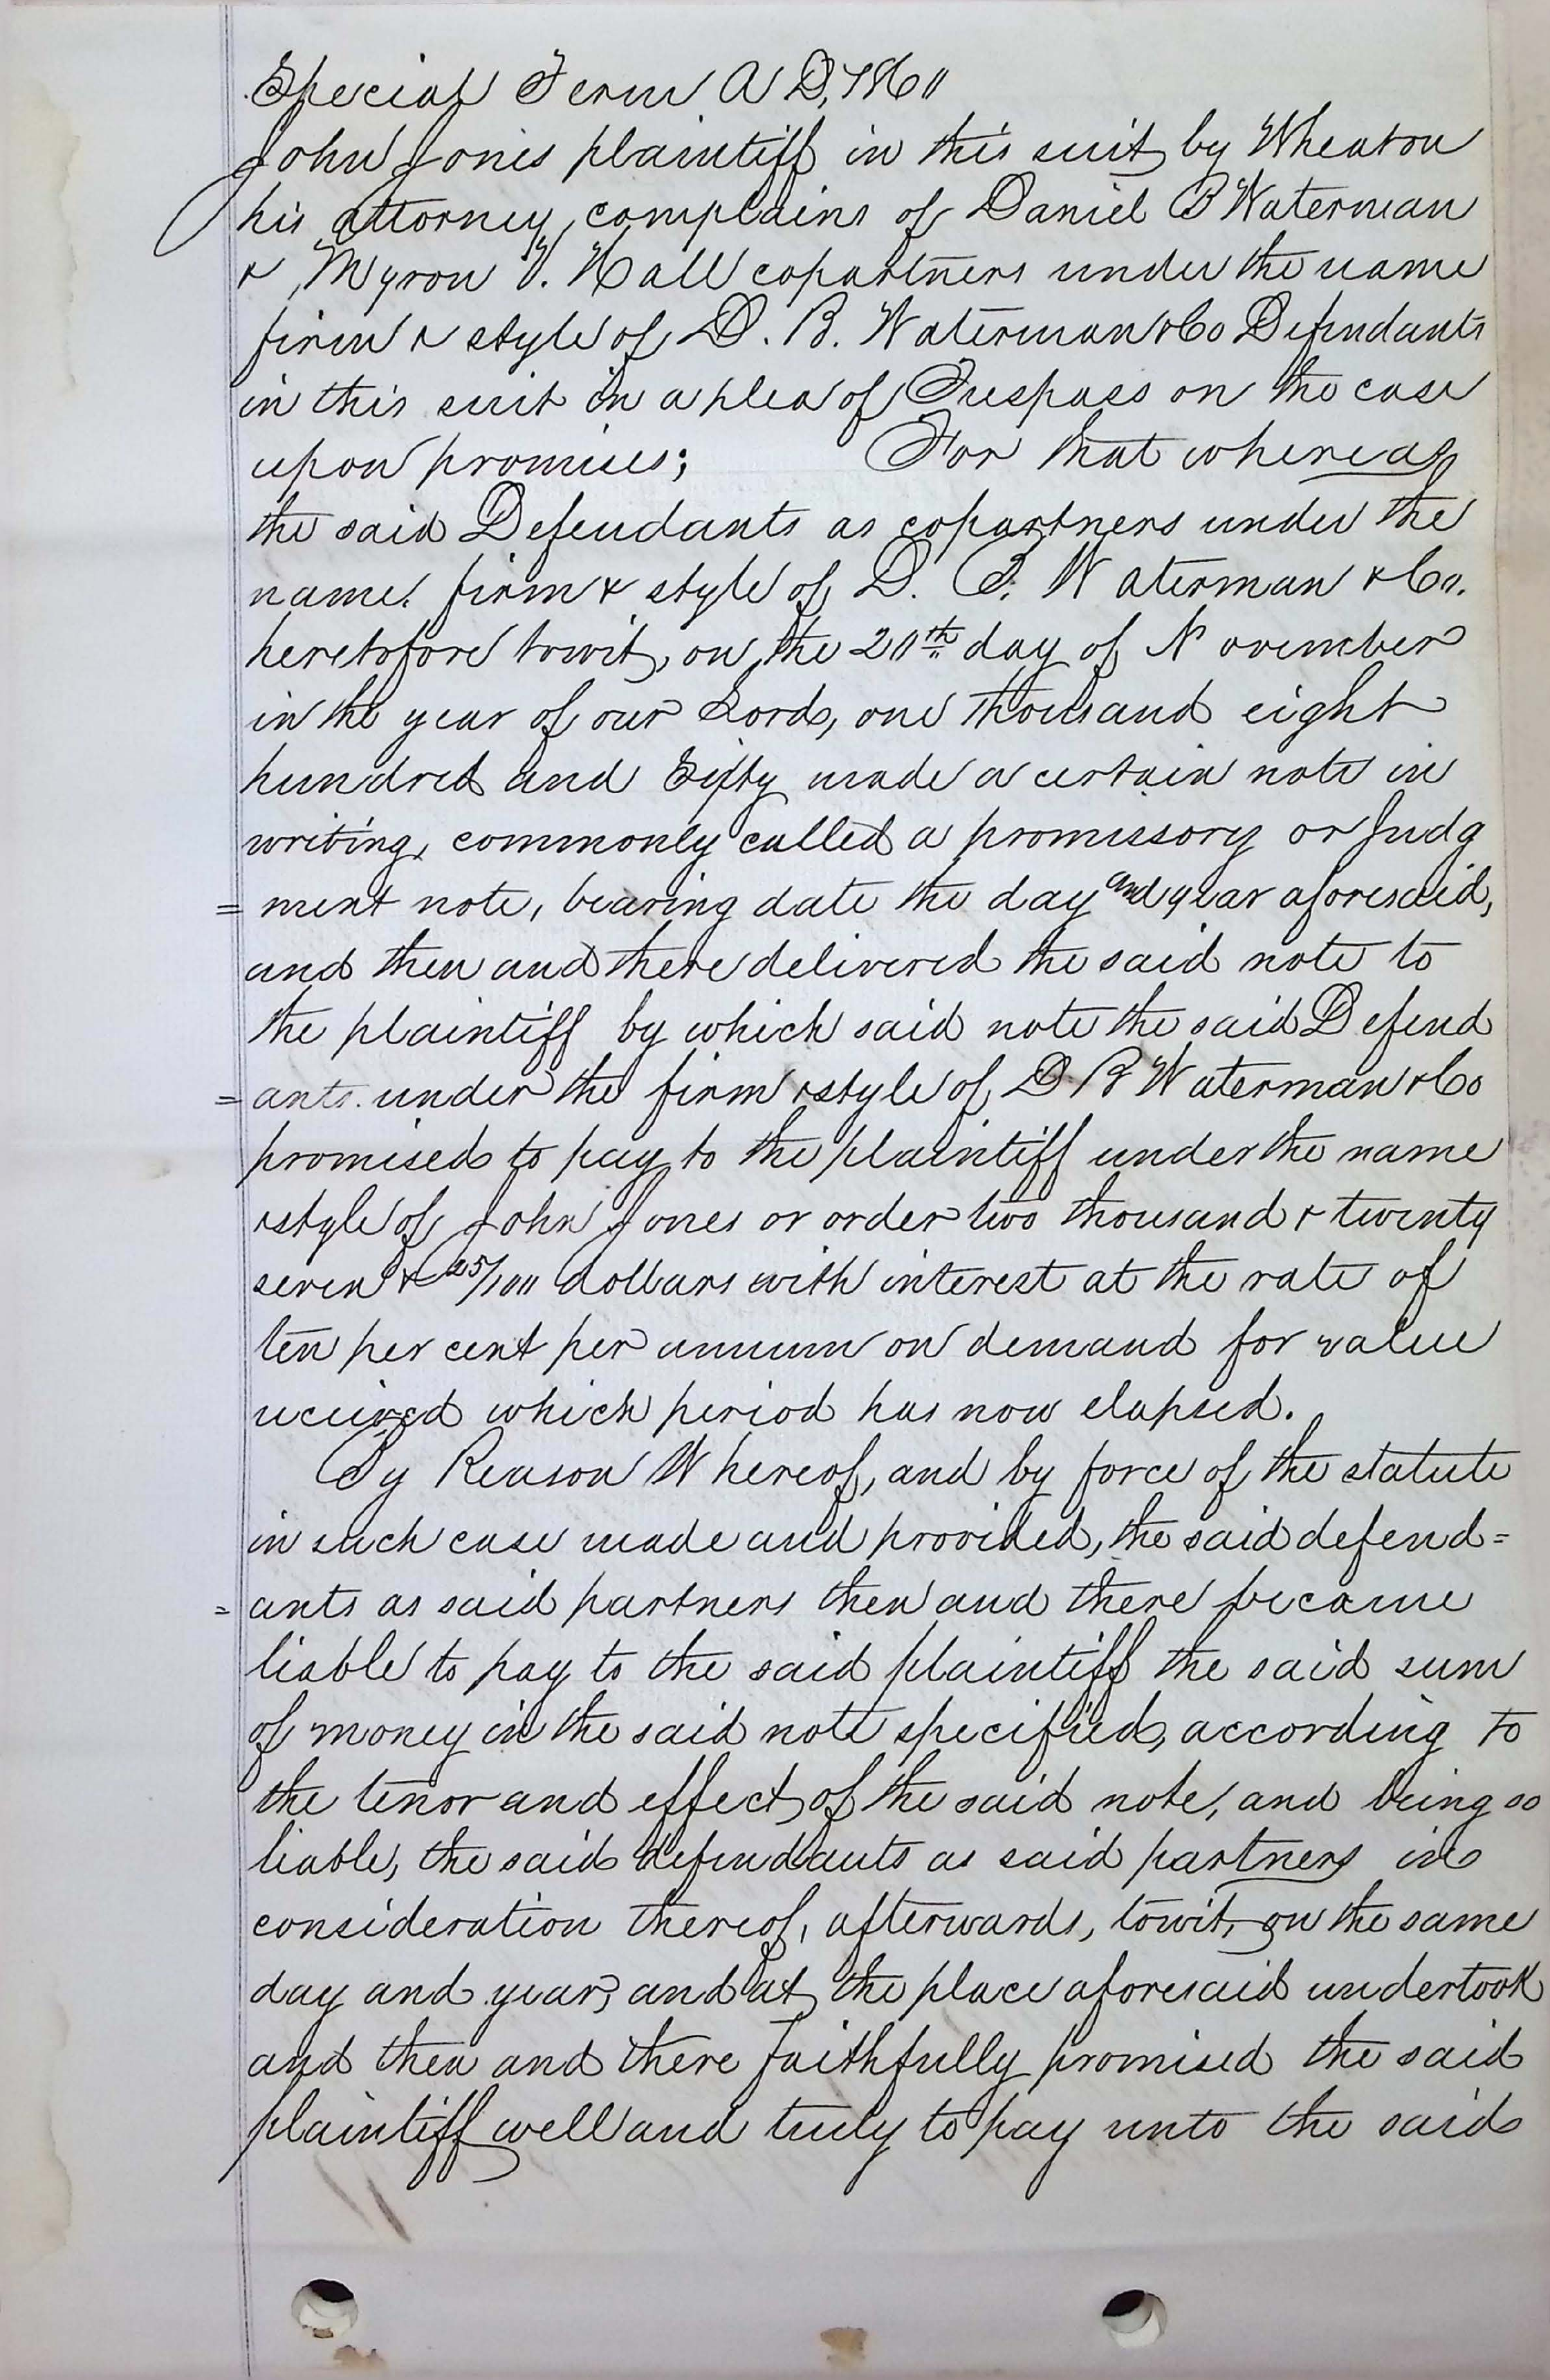 Special Term A D, 1860
John Jones plaintiff in this suit by Wheaton
his attorney, complains of Daniel B Waterman
& Myron V. Hall copartners under the name
firm & style of D. B. Waterman & Co Defendants
in this suit in a plea of Trespass on the case
upon promises; For that whereas
the said Defendants as copartners under the
name. firm & style of D. B. Waterman & Co.
heretofore towit, on the 20th day of November
in the year of our Lord, one thousand eight
hundred and Sixty made a certain note in
writing, commonly called a promissory or Judg
= ment note, bearing date the day and year aforesaid,
and then and there delivered the said note to
the plaintiff by which said note the said Defend
= ants. under the firm & style of D B Waterman & Co
promised to pay to the plaintiff under the name
& style of John Jones or order two thousand & twenty
seven & 25/100 dollars with interest at the rate of
ten per cent per annum on demand for value
received which period has now elapsed.
By Reason Whereof, and by force of the statute
in such case made and provided, the said defend=
= ants as said partners then and there became
liable to pay to the said plaintiff the said sum
of money in the said note specified, according to
the tenor and effect, of the said note, and being so
liable, the said defendants as said partners in
consideration thereof, afterwards, towit, on the same
day and year, and at the place aforesaid undertook
and then and there faithfully promised the said
plaintiff well and truly to pay unto the said